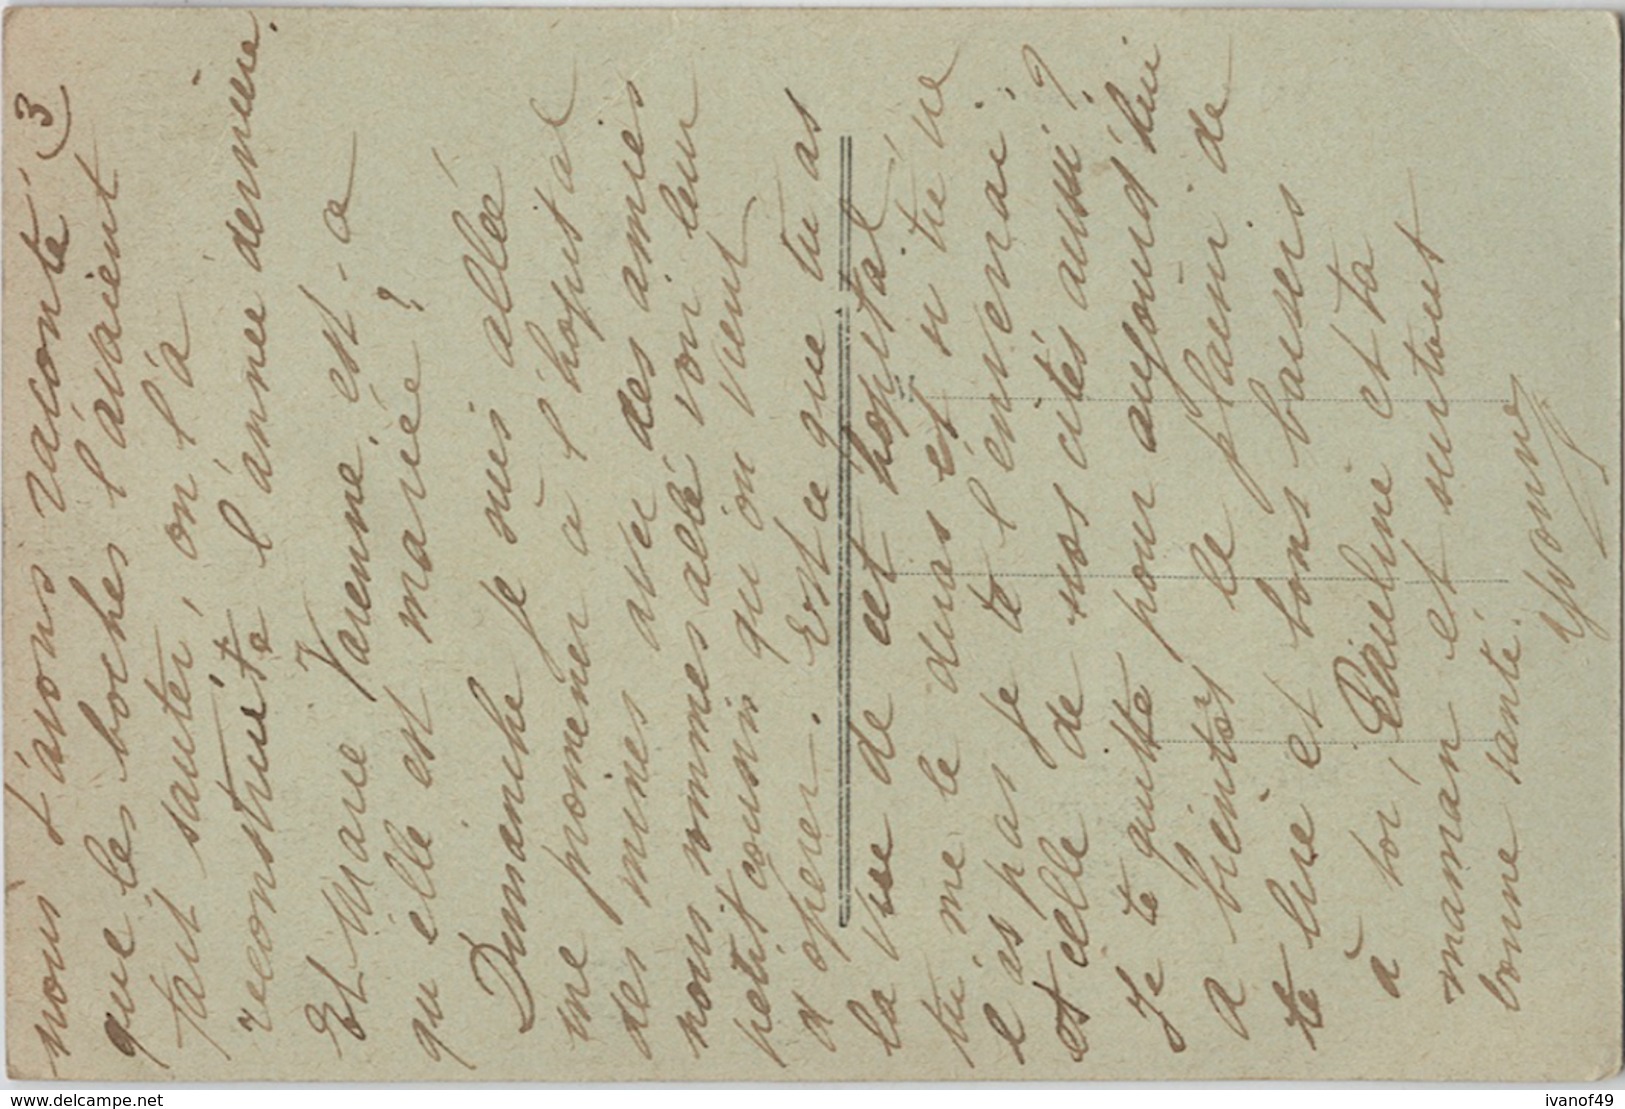 3)
nous t'avons raconté
que les boches l'avaient
fait sauter, on l'a
reconstruite l'année dernière.
Et Marie Varenne, est-a
qu'elle est mariée ?
Dimanche je suis allée
me promener à l'hopital
des mines avec des amies
nous sommes allé voir leur
petit cousin qu'on vient
d'operer. Est ce que tu as
la vue de cet hopital
tu me le diras et si tu ne
l'as pas je te l'enverrai.
et celle de nos cités aussi ?
Je te quitte pour aujourd'hui
a bientôt le plaisir de
te lire et bons baisers
à toi, Pauline et ta
maman et surtout
bonne santé.
Yvonne
www.delcampe.net
ivanof49